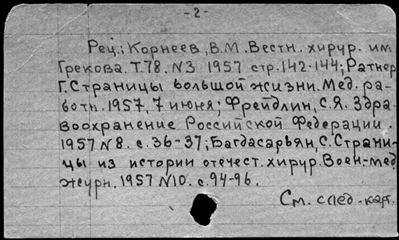 -2-
Рец.: Корнеев, В.М. Вестн. хирур. им
Грекова. Т.78. N3 1957 стр.142-144; Ратнер
Г. Страницы большой жизни. Мед. ра-
ботн. 1957, 7 июня; Фрейдлин, С.Я. Здра-
воохранение Российской Федерации.
1957 N8. с. 36-37; Багдасарьян, С. Страни-
цы из истории отечест. хирур. Воен-мед
журн. 1957 N10. с. 94-96.
См. след. кат.